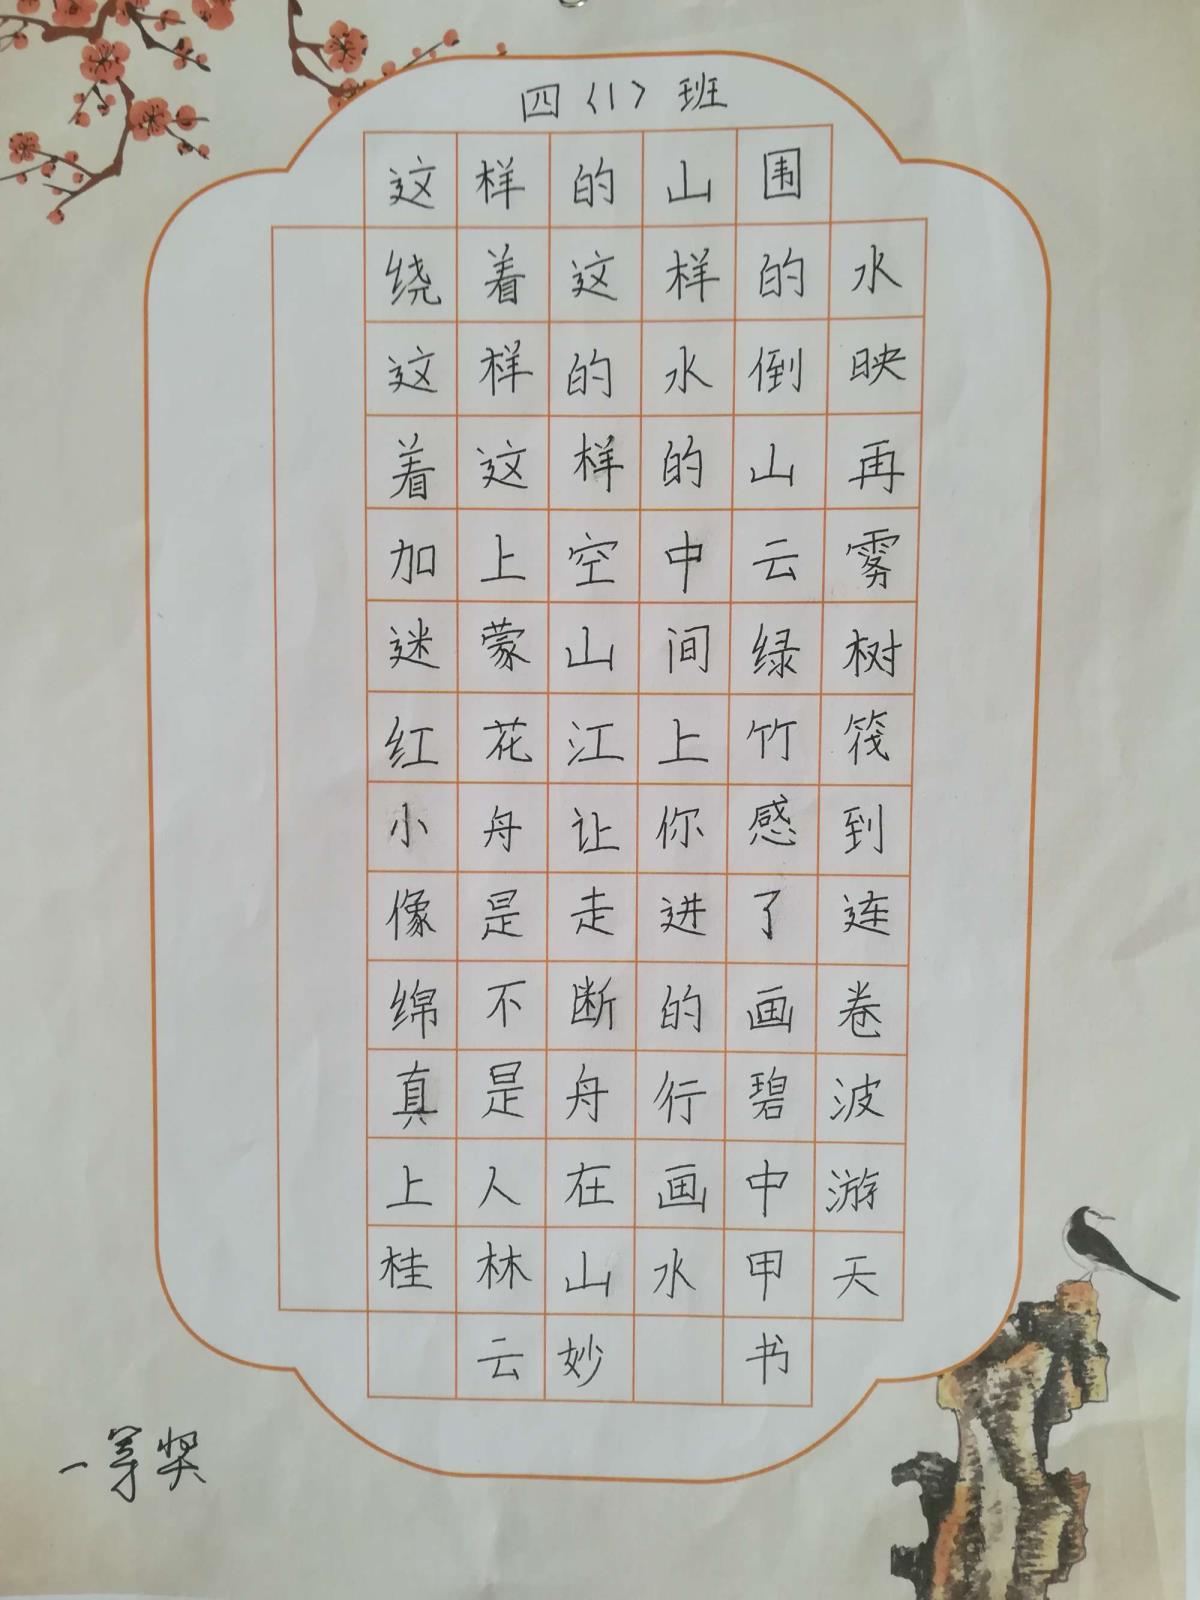 四〈1〉班
这样的山围
绕着这样的水
这样的水倒映
着这样的山再
加上空中云雾
迷蒙山间绿树
红花江上竹筏
小舟让你感到
像是走进了连
绵不断的画卷
真是舟行碧波
上人在画中游
桂林山水甲天
云妙 书
一等奖